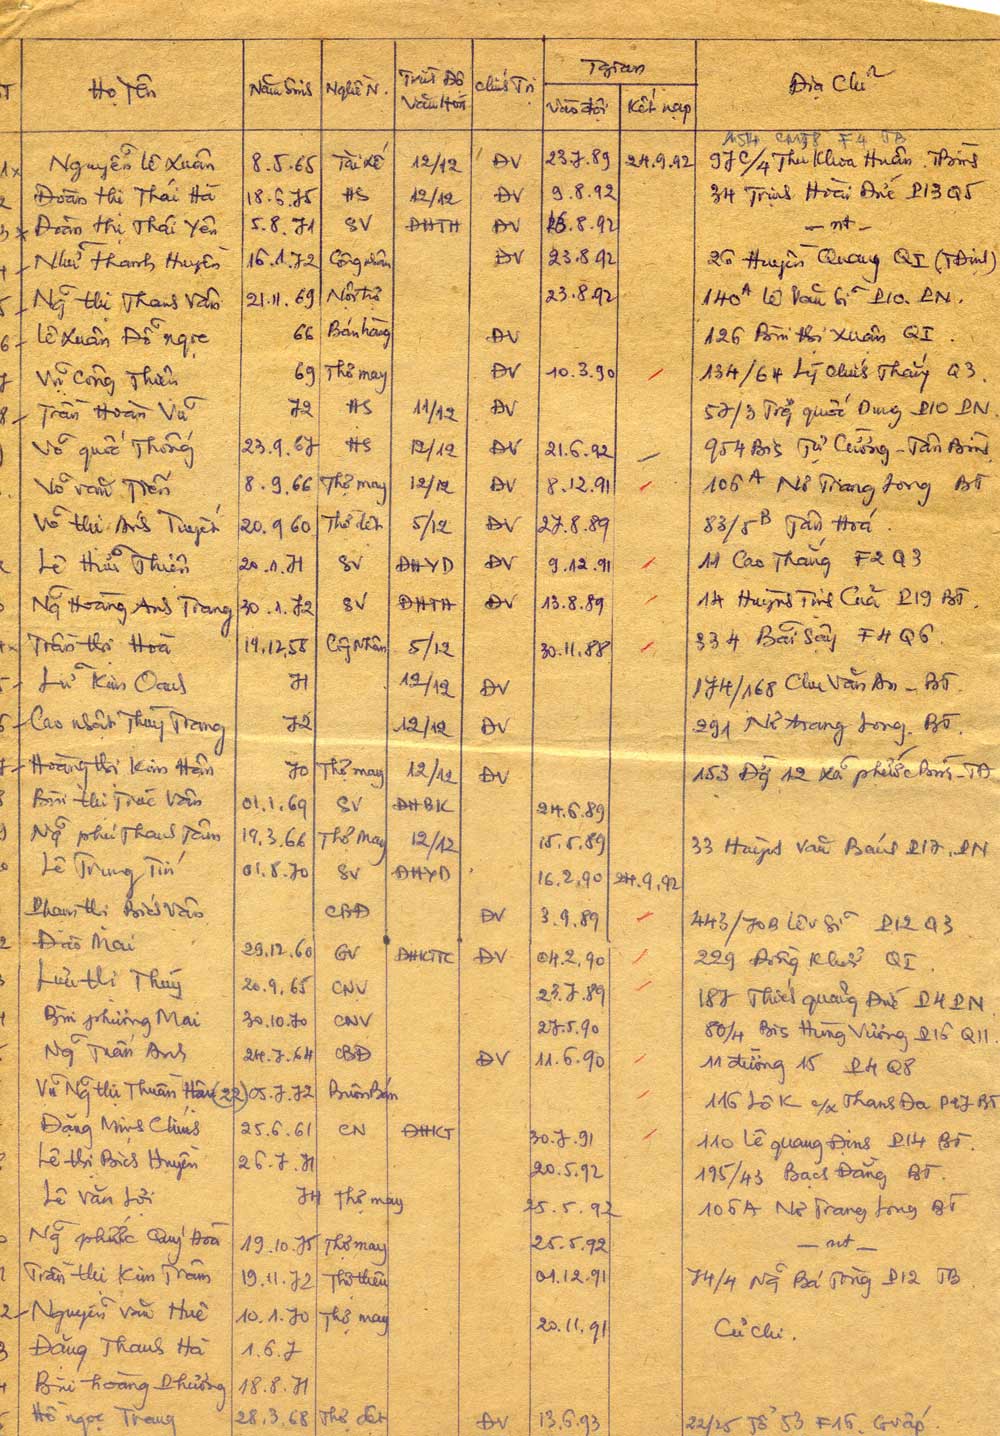 T Họ Tên Năm Sinh Nghề N. Trình Độ Văn Hoá Chính Trị Tgian Vào đội Kết nạp Địa Chỉ
154 CMT8 F4 TB
1x Nguyễn Lê Xuân 8.5.65 Tài xế 12/12 ĐV 23.7.89 24.9.92 97C/4 Thủ Khoa Huân. TBình
2 Đoàn thị Thái Hà 18.6.75 HS 12/12 ĐV 9.8.92 34 Trịnh Hoài Đức P13 Q5
3x Đoàn thị Thái Yên 5.8.71 SV ĐHTH ĐV 16.8.92 _ nt _
4 Như Thanh Huyền 16.1.72 Công nhân ĐV 23.8.92 26 Huyền Quang QI (TĐịnh)
5 Ng̃ thị Thanh Vân 21.11.69 Nội trợ 23.8.92 140A Lê Văn Sĩ P10. PN.
6 Lê Xuân Đỗ ngọc 66 Bán hàng ĐV 126 Bùi thị Xuân QI.
7 Vũ Công Thiên 69 Thợ may ĐV 10.3.90 134/64 Lý Chính Thắng Q3.
8 Trần Hoàn Vũ 72 HS 11/12 ĐV 57/3 quốc Dung P10 PN.
Võ quốc Thống 23.9.67 HS 12/12 ĐV 21.6.92 954 Bis Tự Cường - Tân Bình
Võ văn Tiến 8.9.66 Thợ may 12/12 ĐV 8.12.91 106A Nơ Trang Long BT
Võ thị Ánh Tuyết 20.9.60 Thợ dệt 5/12 ĐV 27.8.89 83/5B Tân Hoá.
2 Lê Hữu Thiên 20.1.71 SV ĐHYD ĐV 9.12.91 11 Cao Thắng F2 Q3
Ng̃ Hoàng Anh Trang 30.1.72 SV ĐHTH ĐV 13.8.89 14 Huỳnh Tịnh Của P19 BT.
Trần thị Hoà 19.12.58 Công Nhân 5/12 30.11.88 334 Bãi Sậy F4 Q6.
5 Lữ Kim Oanh 71 12/12 ĐV 174/168 Chu Văn An - BT.
6 Cao nhất Thuỳ Trang 72 12/12 ĐV 291 Nơ trang Long. BT.
7 Hoàng thị Kim Hân 70 Thợ may 12/12 ĐV 153 12 xã phước Bình - TĐ
8 Bùi thị Trúc Vân 01.1.69 SV ĐHBK 24.6.89
9 Ng̃ phú Thanh Tâm 19.3.66 Thợ May 12/12 15.5.89 33 Huỳnh văn Bánh P17. PN
Lê Trung Tín 01.8.70 SV ĐHYD 16.2.90 24.9.92
Phạm thị Bích Vân CBĐ ĐV 3.9.89 443/70B Lê v Sĩ P12 Q3
2 Đào Mai 29.12.60 GV ĐHKTTC ĐV 04.2.90 229 Đồng Khởi QI.
3 Lưu thị Thuý 20.9.65 CNV 23.7.89 187 Thích quảng Đức P4 PN
4 Bùi phương Mai 30.10.70 CNV 27.5.90 80/4 Bis Hùng Vương P16 Q11.
Ng̃ Trần Anh 24.7.64 CBĐ ĐV 11.6.90 11 đường 15 P4 Q8
Vũ Ng̃ thị Thuần Hậu (22) 05.7.72 Buôn Bán 116 Lô K c/x Thanh Đa P27 BT
Đặng Minh Chính 25.6.61 CN ĐHKT 30.7.91 110 Lê quang Định P14 BT.
Lê thị Bích Huyền 26.7.71 20.5.92 195/43 Bạch Đằng BT.
Lê Văn Lợi 74 Thợ may 25.5.92 106A Nơ Trang Long BT
Ng̃ phước Quý Hoà 19.10.75 Thợ may 25.5.92 _ nt _
Trần thị Kim Trâm 19.11.72 Thợ thêu 01.12.91 74/4 Ng̃ Bá Tòng P12 TB
2 Nguyễn văn Huê 10.1.70 Thợ may 20.11.91 Củ chi.
3 Đặng Thanh Hà 1.6.7
4 Bùi hoàng Phương 18.8.71
5 Hồ ngọc Trang 28.3.68 Thợ dệt ĐV 13.6.93 22/25 Tổ 53 F16. Gvấp.